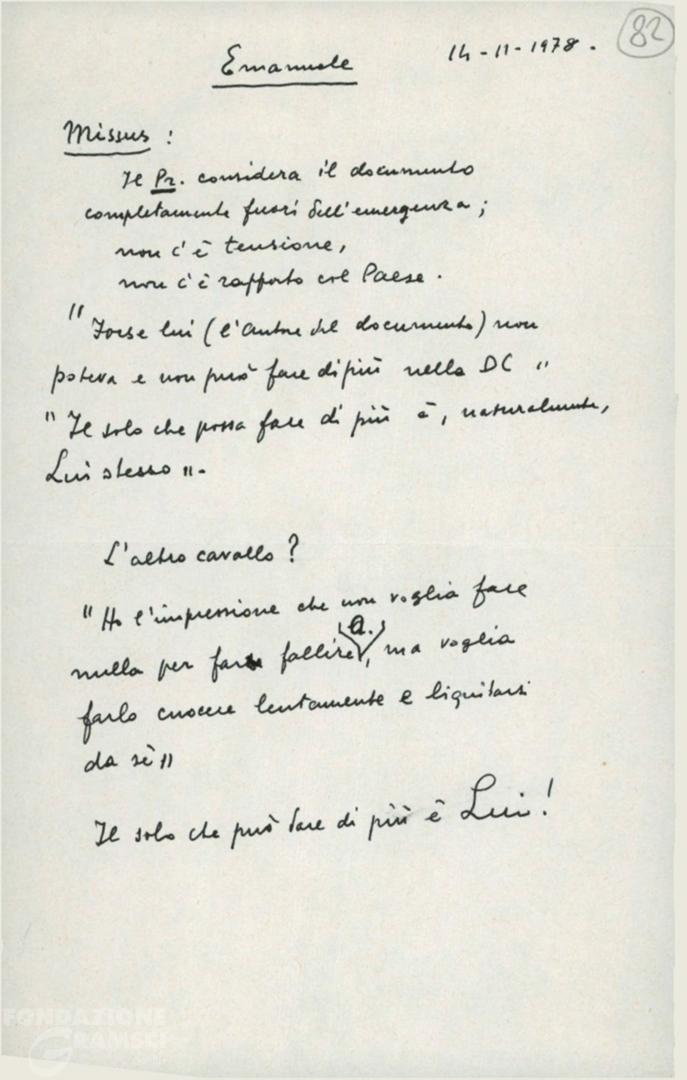 82
Emanuele 14-11-1978.
Missus :
Il Pr. considera il documento
completamente fuori dell'emergenza ;
non c'è tensione,
non c'è rapporto col Paese.
"Forse lui (l'autore del documento) non
poteva e non può fare di più nella DC"
"Il solo che possa fare di più è, naturalmente,
Lui stesso".
L'altro cavallo ?
"Ho l'impressione che non voglia fare
A.
nulla per fare fallire, ma voglia
farlo cuocere lentamente e liquidarsi
da sè"
Il solo che può fare di più è Lui!
FONDAZIONE
GRAMSCI